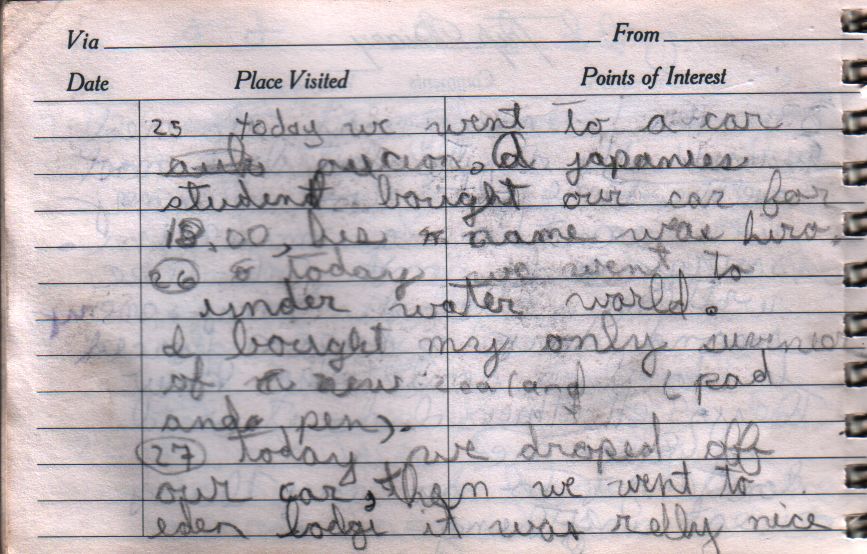 Via From
Date Place Visited Points of Interest
25 today we went to a car
aucion. A japanies
student bought our car for
18.00, his name was hiro.
26 today we went to
under water world.
I bought my only suvenor
of new zealand (pad
and pen).
27 today we droped off
our car, then we went to
eden lodge it was relly nice